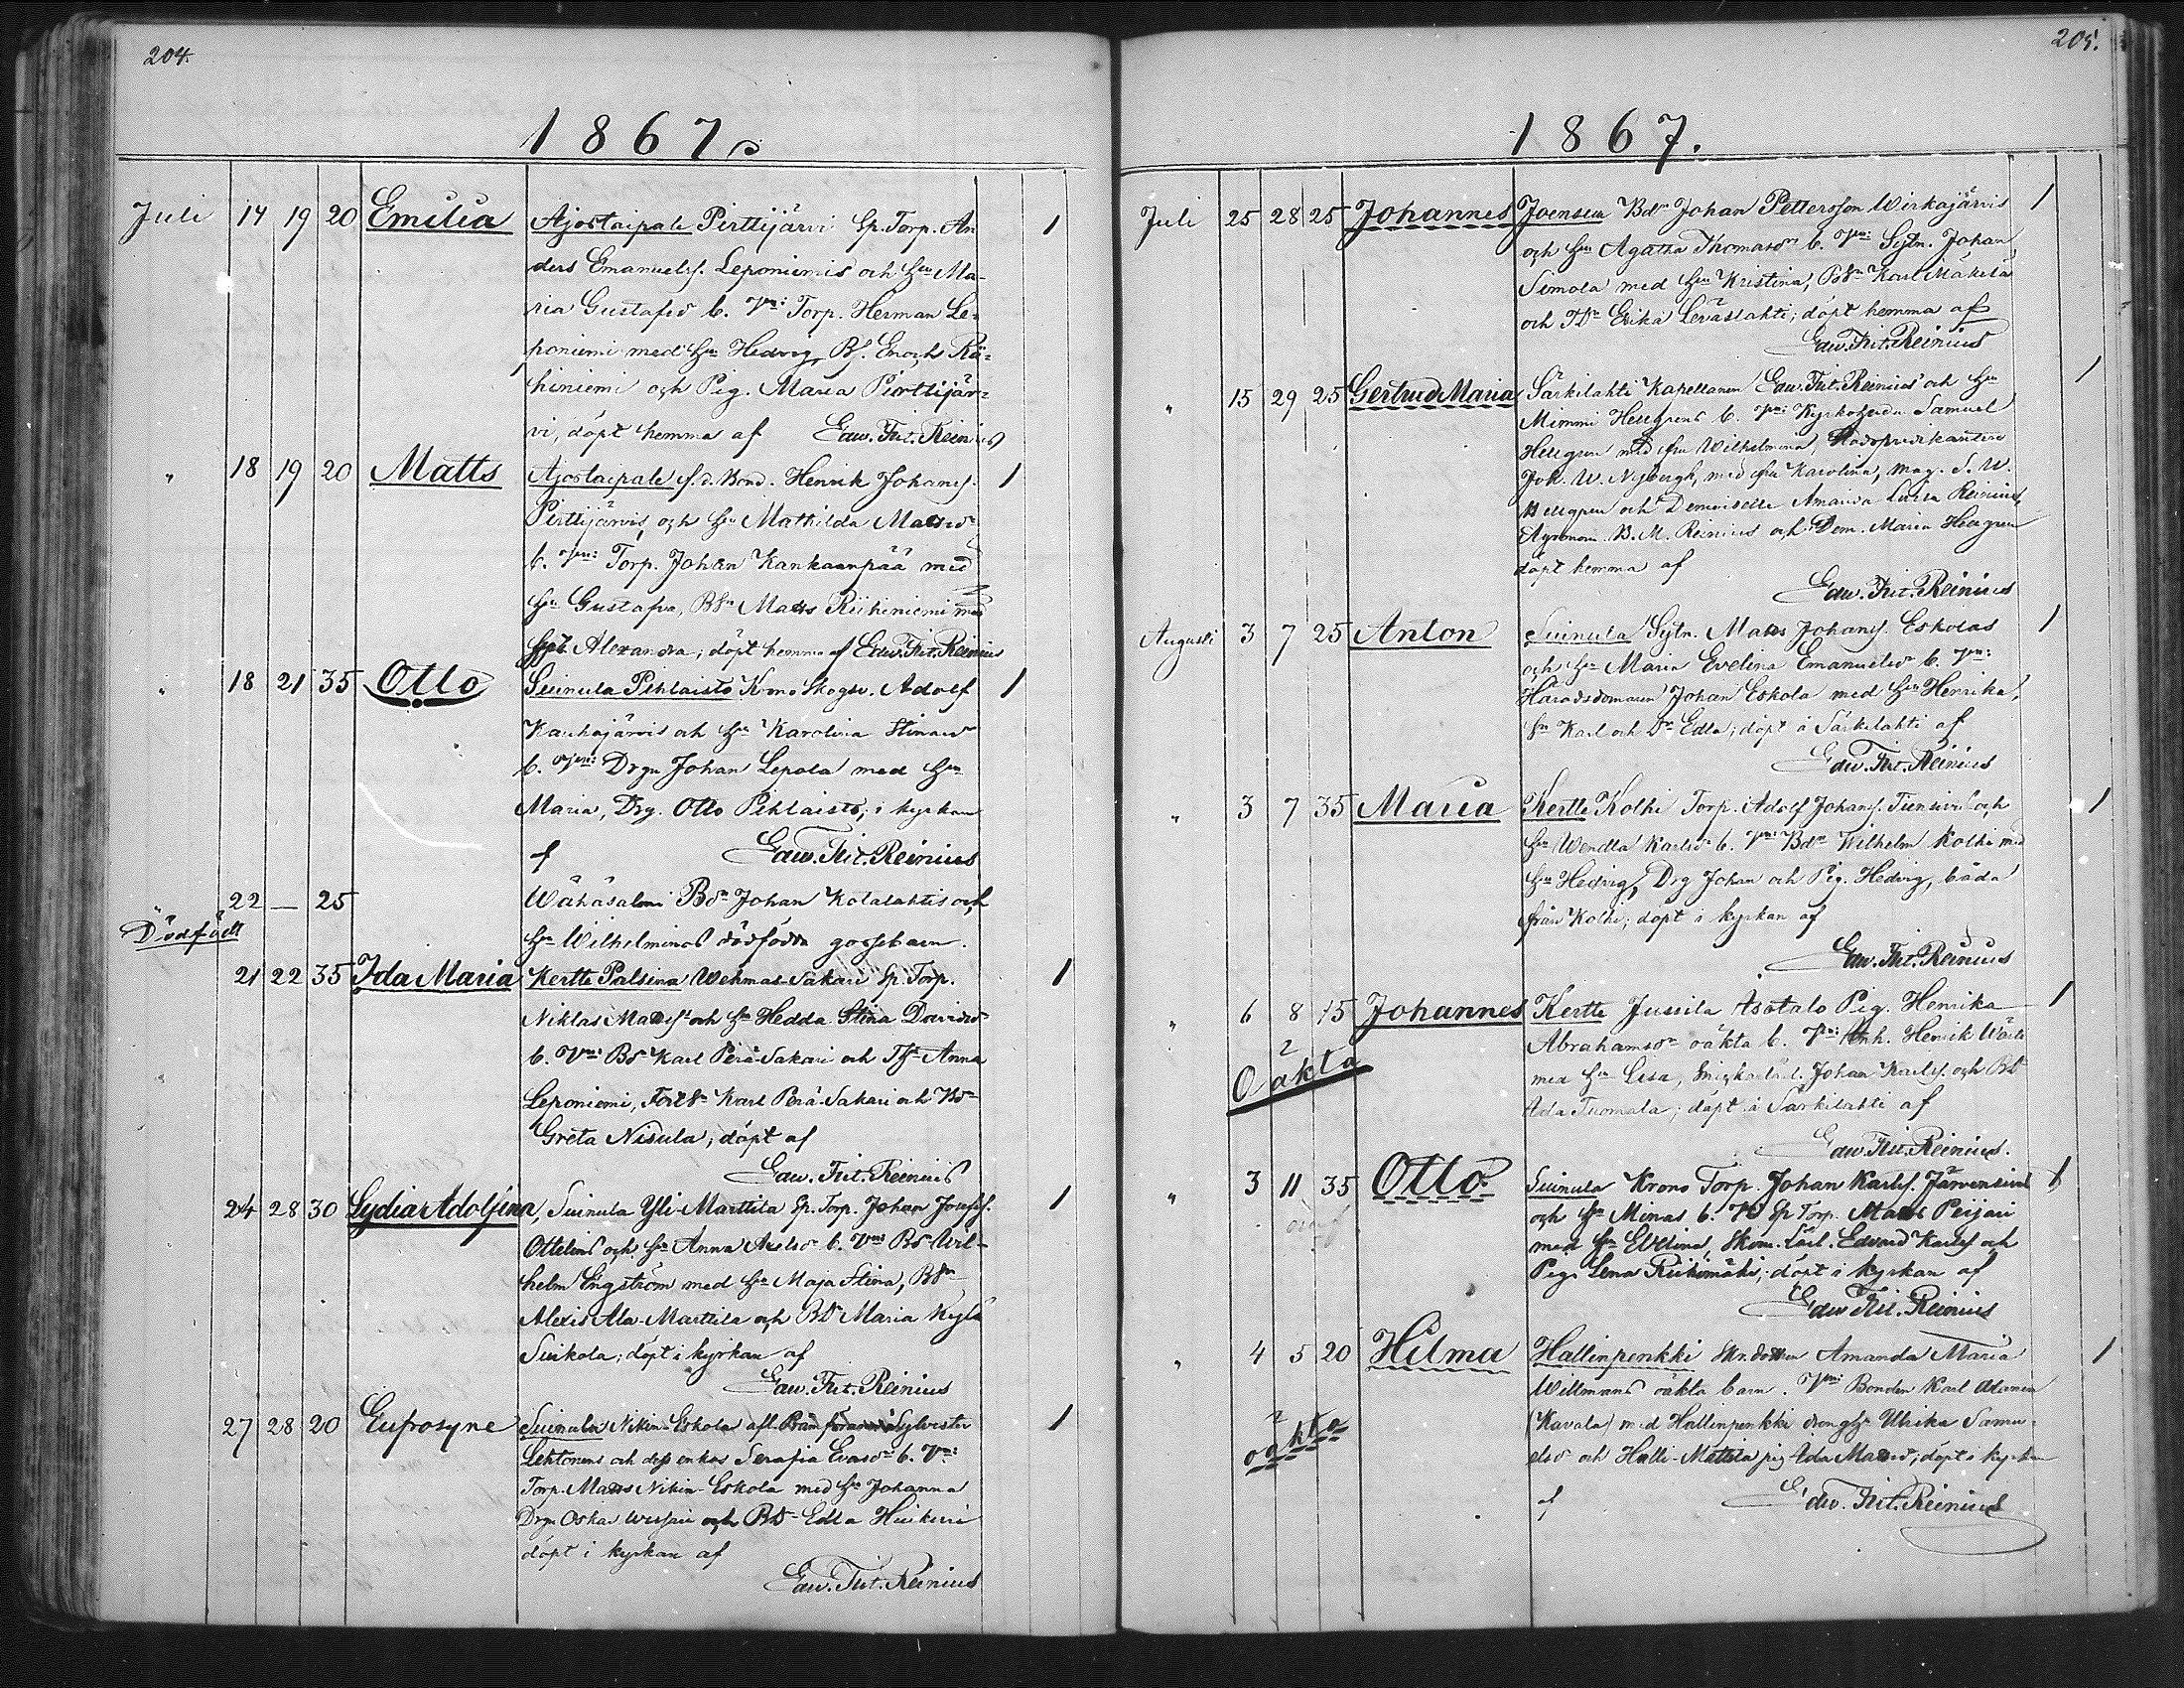 204.
1867.
Juli 14 19 20 Emilia Ajostaipale Pirttijärvi Sp. Torp. An 1
ders Emanuelss. Leponiemis och Hu Ma-
ria Gustafsd b. Vn: Torp. Herman Le-
poniemi med Hu Hedvig, Bs. Enoch
hiniemi och Pig. Maria Pirttijär-
vi, döpt hemma af Edw. Frit. Reinius
" 18 19 20 Matts Ajostaipale f.d. Bond. Henrik Johans. 1
Pirttijärvis, och Hu Mathilda Matsdr
b. Vn: Torp. Johan Kankaanpää med
Hu Gustafva, BSn Matts Riihiniemi med
Alexandra; döpt hemma af Edw. Frit. Reinius
" 18 21 35 Otto Suinula Pihlaisto Krono Skogsv. Adolf 1
Kauhajärvis och Hu Karolina Stinasdr
b. Vn: Drgn Johan Lepola med Hu
Maria, Drg. Otto Pihlaisto; i kyrkan
af Edw. Frit. Reinius
" 22 — 25 Wähäsalmi Bdn Johan Kotalahtis och
Dödfödt Hu Wilhelminas dödfödda gossebarn.
21 22 35 Ida Maria Kertte Palsina Wehmas-Sakari Sp. Torp. 1
Niklas Matss. och Hu Hedda Stina Davidsdr
b. Vn: BSn Karl Perä-Sakari och Anna
Leponiemi, Karl Perä-Sakari och
Greta Nisula; döpt af
Edw. Frit. Reinius
24 28 30 Lydia Adolfina, Suinula Yli-Marttila Sp. Torp. Johan Josefss. 1
Ottelins och Hu Anna Axelsdr b. Vn: Bs Wil-
helm Engström med Hu Maja Stina, BSn
Alexis Ala-Marttila och BD Maria Kylä
Suikola; döpt i kyrkan af
Edw. Frit. Reinius
27 28 20 Eufrosyne Suinula Nikin-Eskola afl. Sylvester 1
Lehtonens och dess enkas Serafia Evasdr b. Vn:
Torp. Matts Nikin-Eskola med Hu Johanna
Drgn Oskar och BD Edla
döpt i kyrkan af
Edw. Frit. Reinius
205.
1867.
Juli 25 28 25 Johannes Joensuu Bdn Johan Pettersson Wirkajärvis 1
och Hu Agatha Thomasdr b. Vn: Sytn. Johan
Simola med Hu Kristina, BSn Karl Mäkelä
och Erika Leväslahti; döpt hemma af
Edw. Frit. Reinius
" 15 29 25 Gertrud Maria Särkilahti Kapellanen Edw. Frit. Reinius och Hu 1
Mimmi Hellgrens b. Vn: Kyrkoherden Samuel
Hellgren med fru Wilhelmina,
Joh. W. Nybergh, med fru Karolina, Mag. S. W.
Hellgren och Demoiselle Amanda Lovisa Reinius,
Agronom B. M. Reinius och Dem. Maria Hellgren
döpt hemma af
Edw. Frit. Reinius
Augusti 3 7 25 Anton Suinula Sytn. Matts Johans. Eskolas 1
och Hu Maria Evelina Emanuelsdr b. Vn:
Häradsdomaren Johan Eskola med Hu Henrika,
Sn Karl och Dr Edla; döpt å Särkilahti af
Edw. Frit. Reinius
" 3 7 35 Maria Kertte Kolhi Torp. Adolf Johans. Tiensivu och 1
Hu Wendla Karlsdr b. Vn: Bdn Wilhelm Kolhi med
Hu Hedvig, Drg Johan och Pig. Hedvig, båda
från Kolhi; döpt i kyrkan af
Edw. Frit. Reinius
" 6 8 15 Johannes Kertte Jussila Asotalo Pig. Henrika 1
Oäkta Abrahamsdr oäkta b. Vn: Inh. Henrik
med Hu Lisa, Johan Karlss. och BD
Ida Tuomala; döpt i Särkilahti af
Edw. Frit. Reinius.
" 3 11 35 Otto Suinula Krono Torp. Johan Karlss. Järvensivu 1
och Hu Minas b. Vn Sp Torp. Matts Peijari
med Hu Evelina, Skom. Lärl. Edvard Karlss och
Pigr Lena Riihimäki; döpt i kyrkan af
Edw Frit. Reinius
" 4 5 20 Hilma Hallinpenkki Amanda Maria 1
Willmans oäkta barn. Vn: Bonden Karl
oäkta (Kavala) med Hallinpenkki Ulrika Samu-
elsd och Halli-Mattila pig Ida Matsd; döpt i kyrkan
af Edw. Frit. Reinius